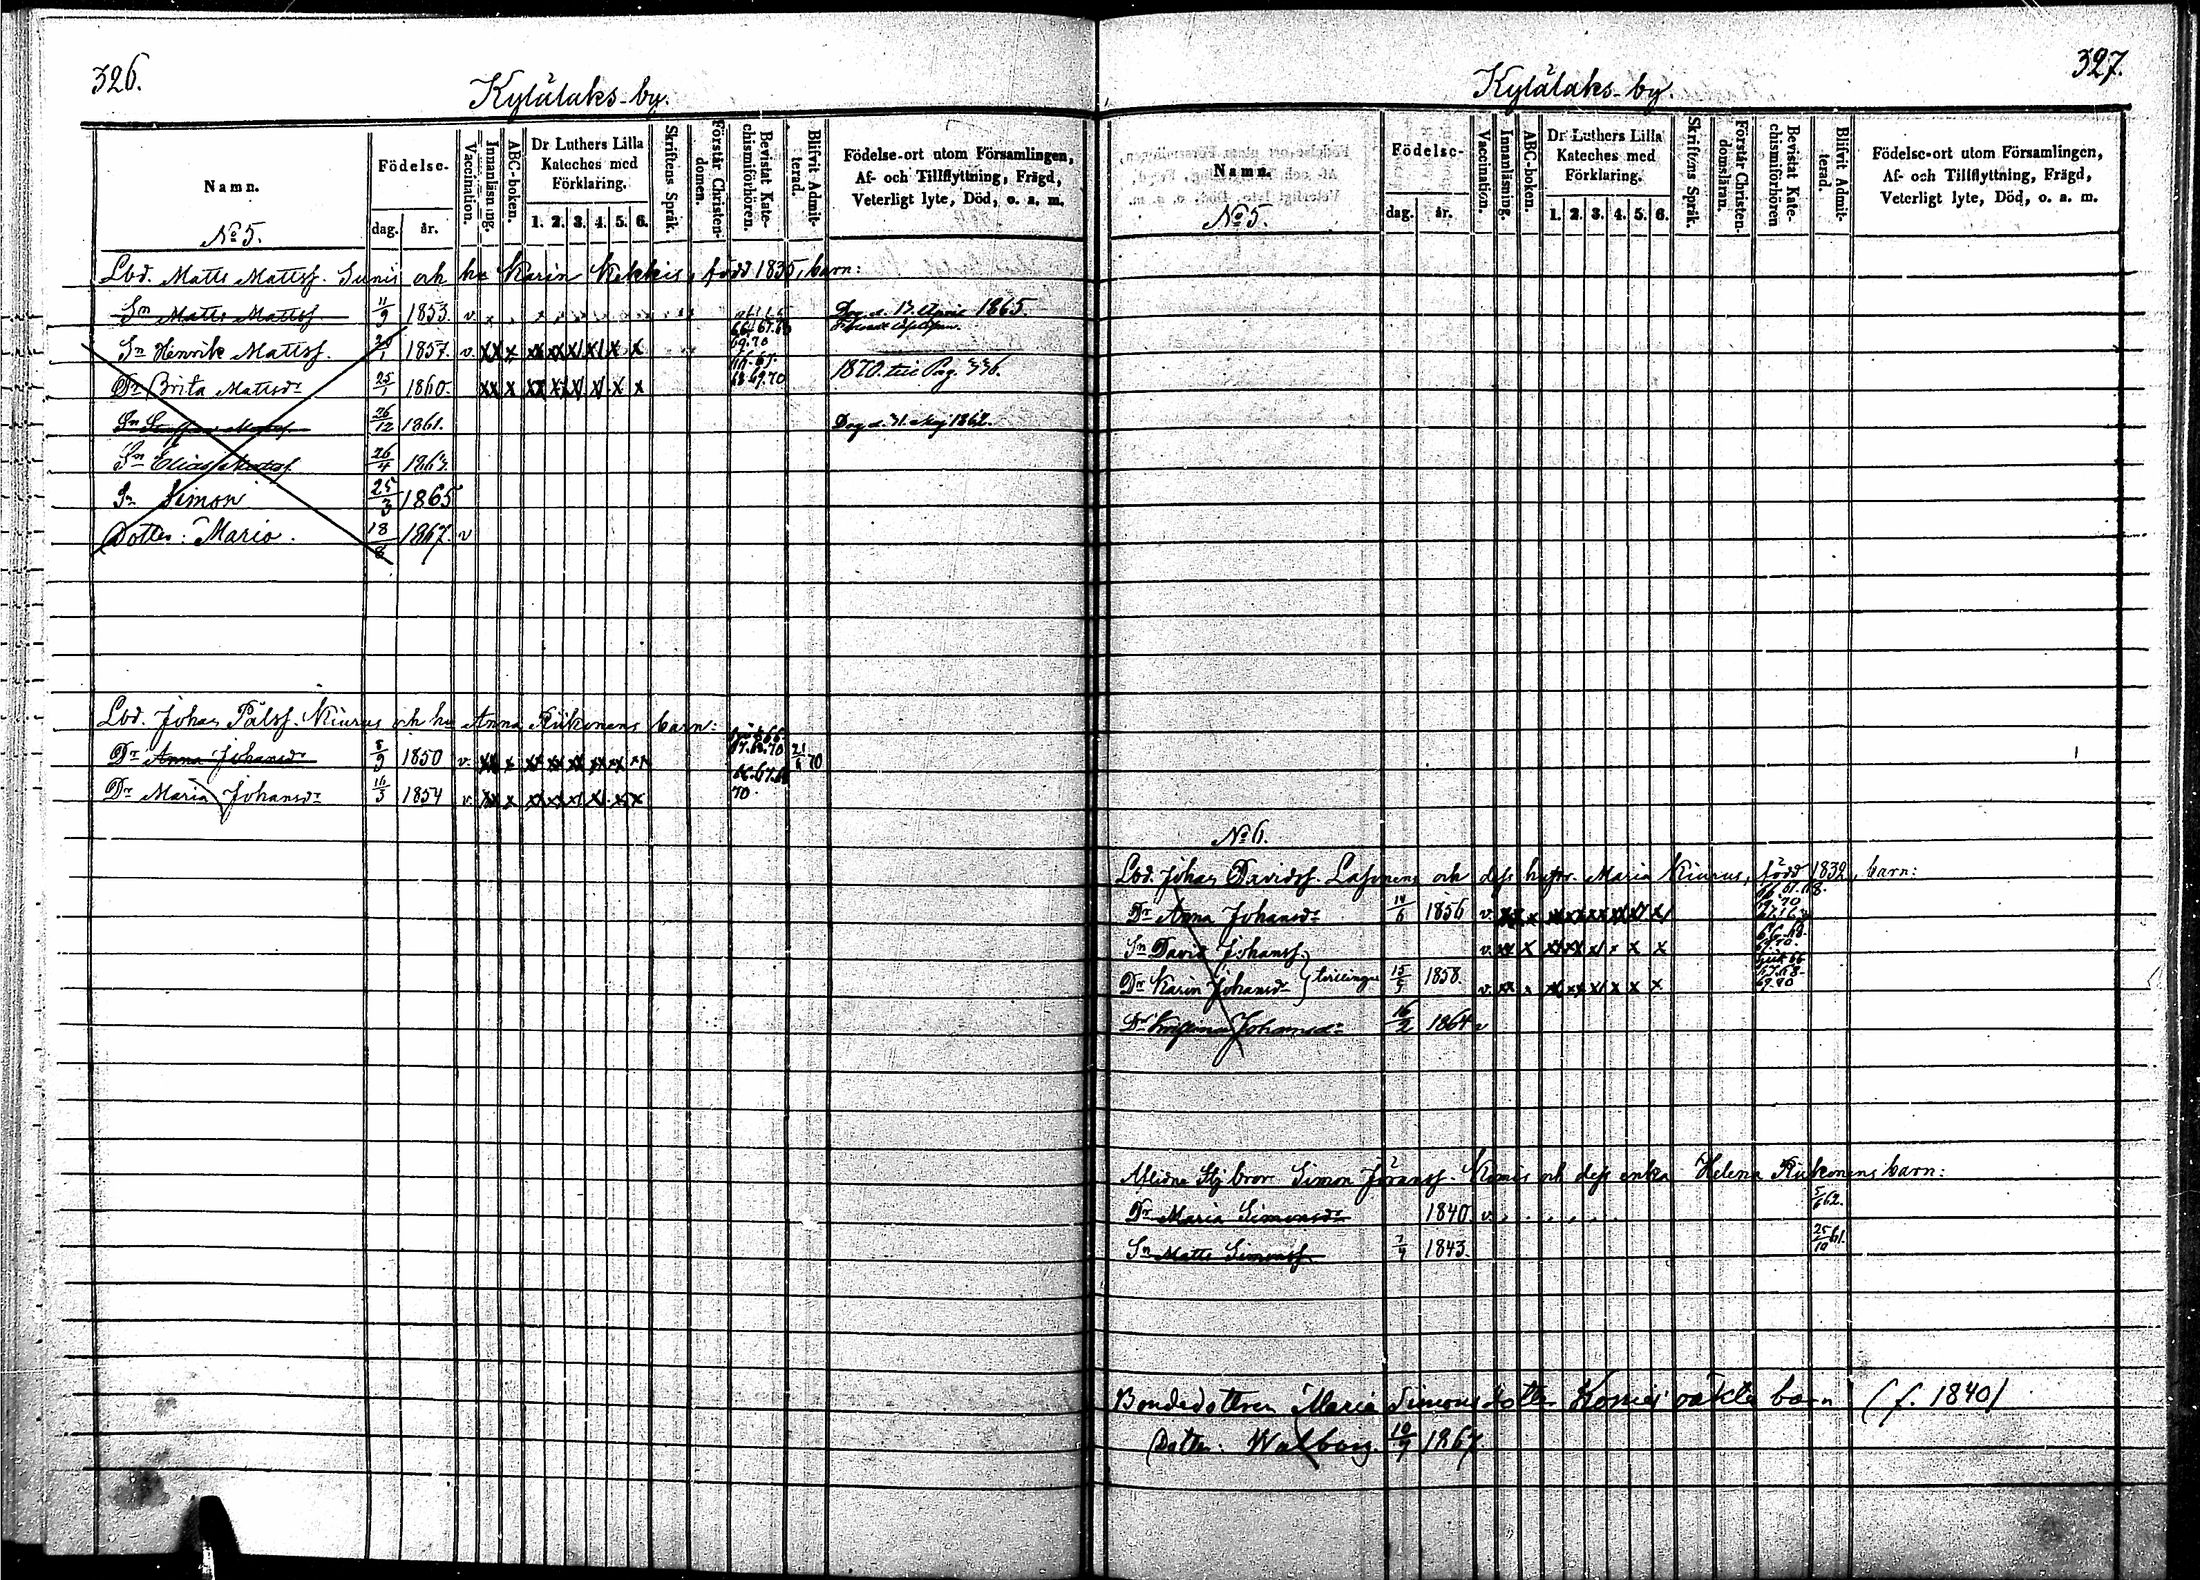 326.
Kylälaks-by.
Namn.
No 5.
Födelse-
dag.
år.
Vaccination.
Innanläsning.
ABC-boken.
Dr Luthers Lilla
Kateches med
Förklaring.
1. 2. 3. 4. 5. 6.
Skriftens Språk.
Förstår Christen-
domen.
Bevistat Kate-
chismiförhören.
Blifvit Admit-
terad.
Födelse-ort utom Församlingen,
Af- och Tillflyttning, Frägd,
Veterligt lyte, Död, o. a. m.
Lbd. Matts Mattsf. och hu Karin Kekkis, född 1835, barn:
Sn Matts Mattsf. 11/9 1853. v. Dog d. 13. April 1865.
Sn Henrik Mattsf. 1857. v. 66.67.68 69.70
Dr Brita Mattsdr 25/1 1860. 68.69.70 1870. till Pag. 336.
Sn 26/12 1861. Dog d. 31. Maj 1862.
Sn Elias Mattsf. 26/4 1863
Sn Simon 25/3 1865
Dotter: Maria. 18/8 1867. v
Lbd. Johan Pålsf. Kiurus och hu Anna Riikonens barn:
Dr Anna Johansdr 8/9 1850 v. 67.68.70 21/6 70
Dr Maria Johansdr 16/3 1854 v. 66.67.68 70.
327.
Kylälaks-by.
Namn.
No 5.
Födelse-
dag.
år.
Vaccination.
Innanläsning.
ABC-boken.
Dr Luthers Lilla
Kateches med
Förklaring.
1. 2. 3. 4. 5. 6.
Skriftens Språk.
Förstår Christen-
domsläran.
Bevistat Kate-
chismiförhören
Blifvit Admit-
terad.
Födelse-ort utom Församlingen,
Af- och Tillflyttning, Frägd,
Veterligt lyte, Död, o. a. m.
No 6.
Lbd. Johan Davidsf. Lasonens och dess hustr. Maria Kiurus, född 1832, barn:
Dr Anna Johansdr 14/6 1856 v.
Sn David Johansf. v.
Dr Karin Johansdr tvillingar 15/5 1858. v. 67.68. 69.70
Dr Johansdr 16/2 1864 v
Aflidne Simon Göransf. Komis och dess enka Helena Riikonens barn:
Dr Maria Simonsdr 1840 v. 5/6 62.
Sn Matts Simonsf. 1843. 25/10 61.
Bondedottren Maria Simonsdotter Komis oäkta barn (f. 1840)
Dotter: Walborg. 10/9 1867.